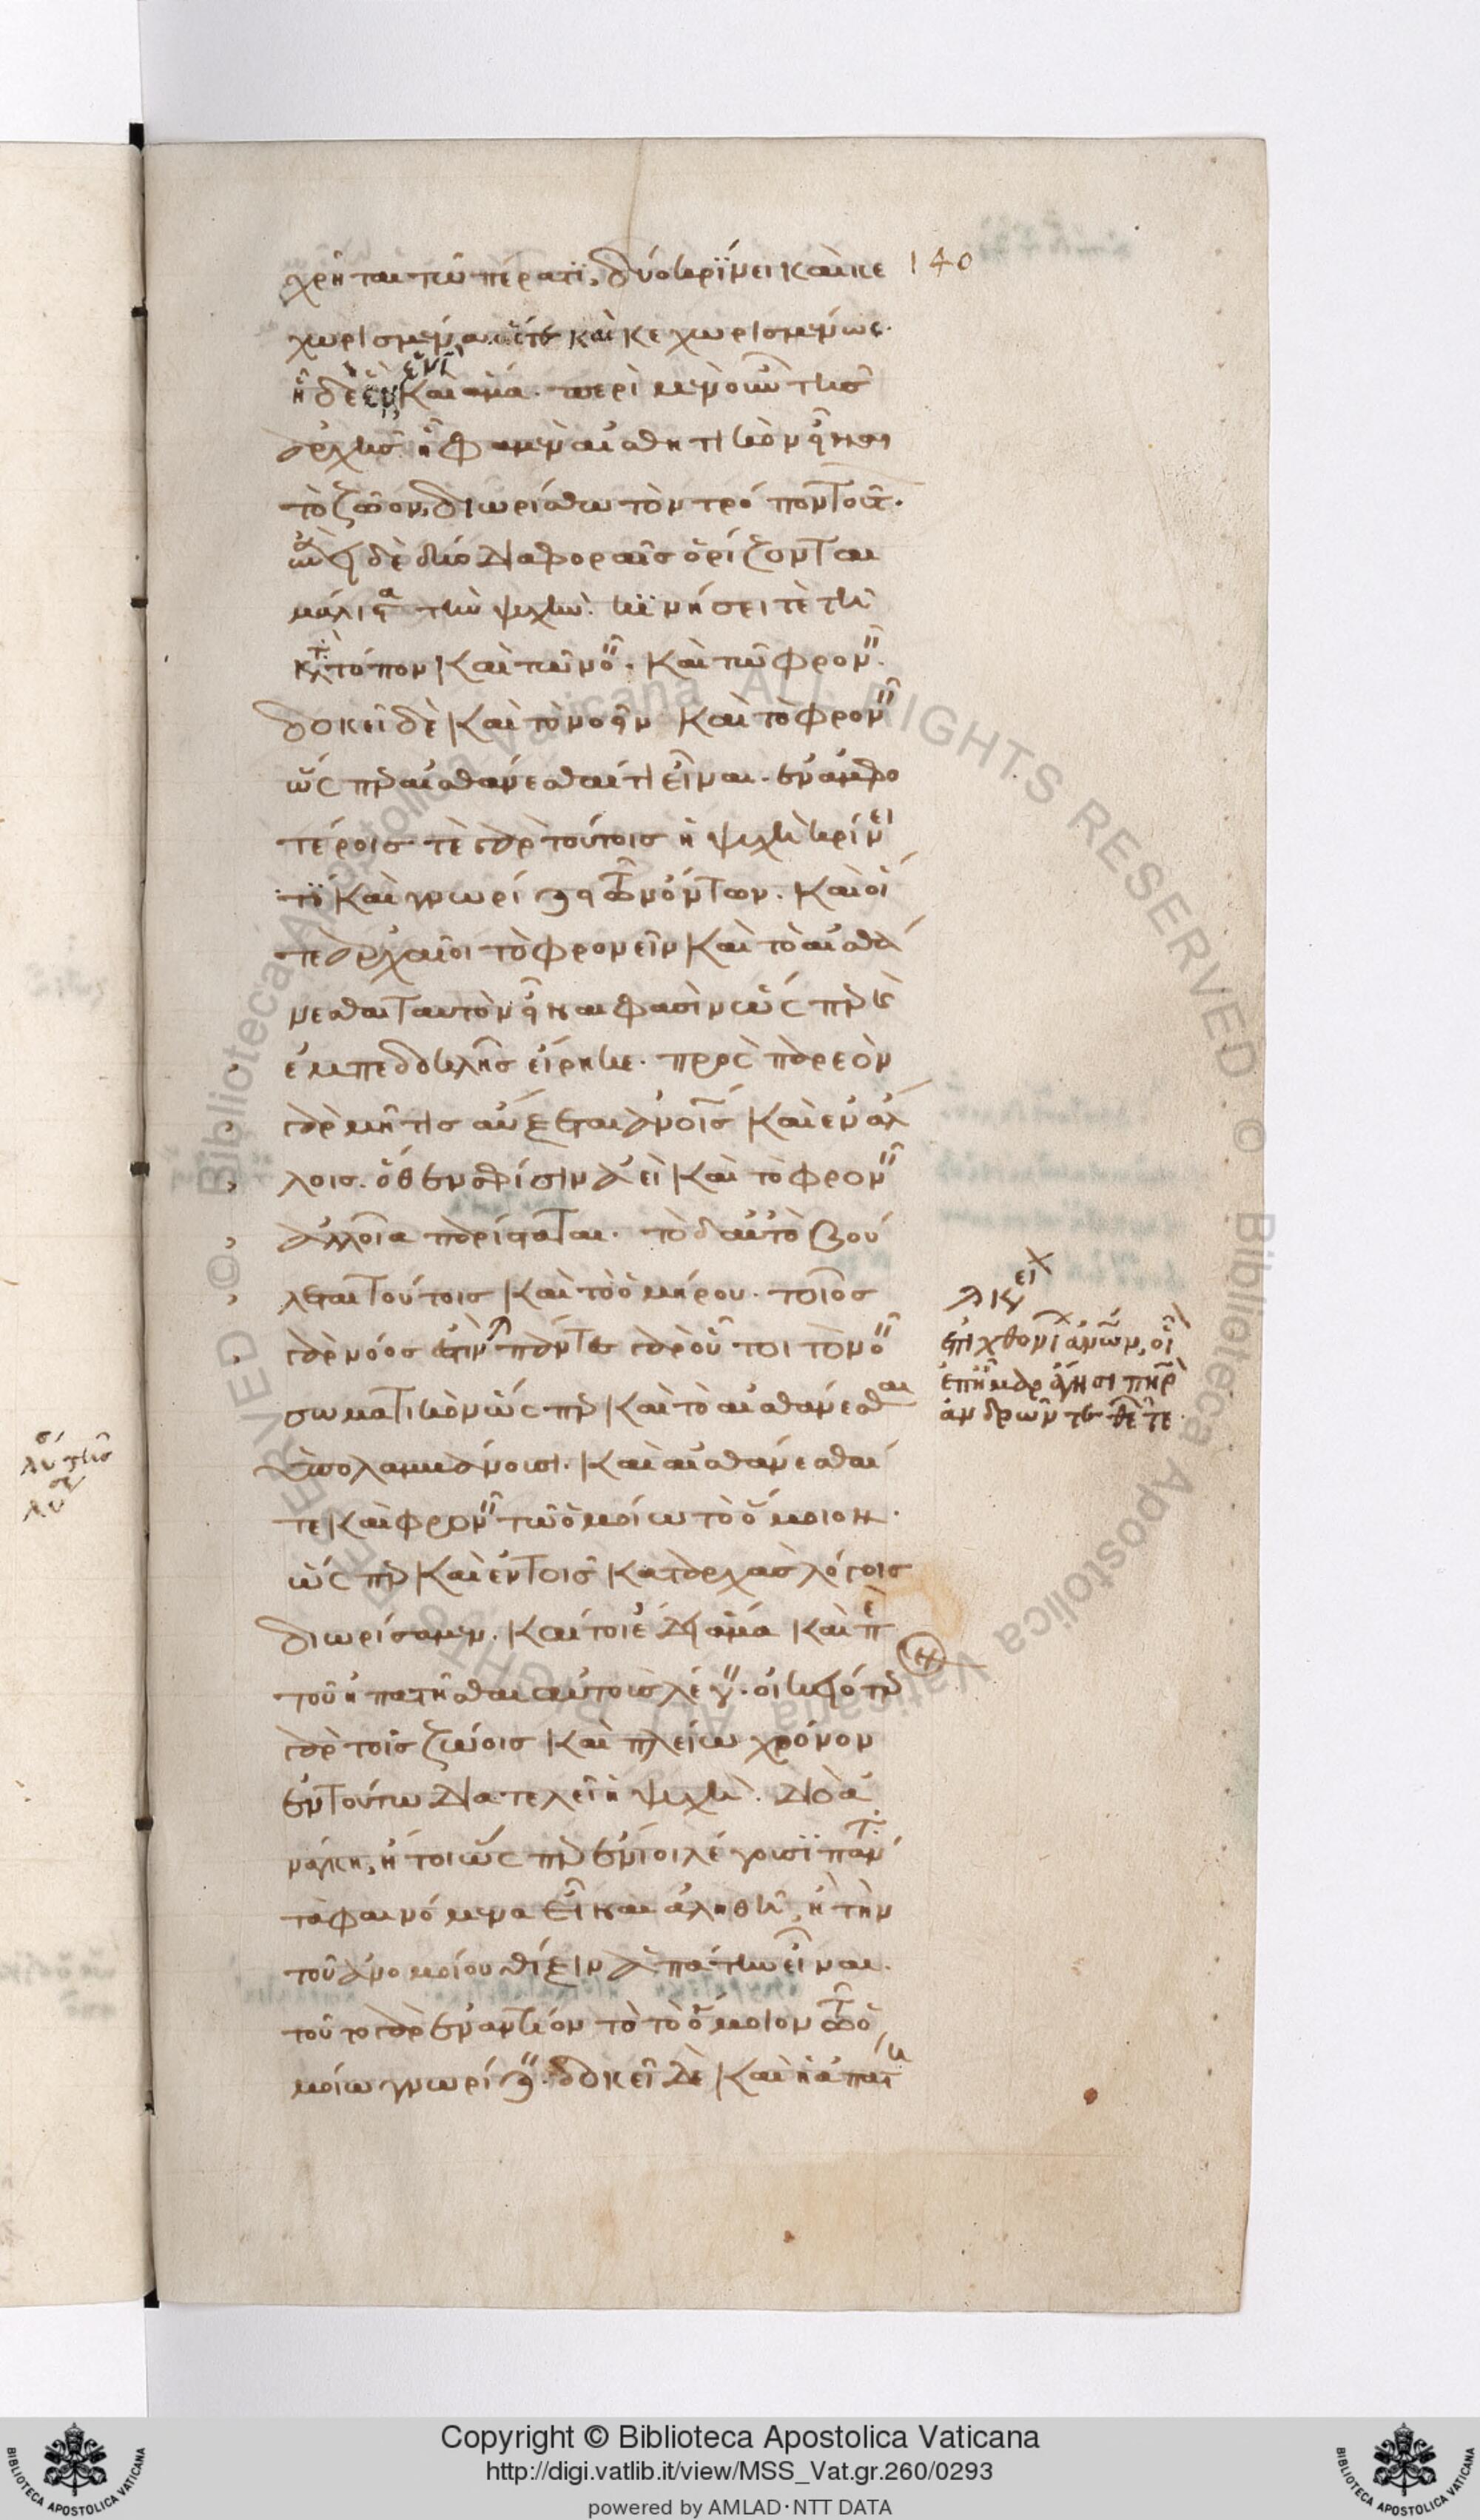 χρῆται τῷ πέρατι, δύο κρίνει καὶ κε
χωρισμένα ἐστὶ καὶ κεχωρισμένως.
ἧ δὲ ἓν ἑνὶ καὶ ἅμα. περὶ μὲν οὖν τῆς
ἀρχῆς ᾗ φαμὲν αἰσθητικὸν εἶναι
τὸ ζῶον, διωρίσθω τὸν τρόπον τοῦτον.
ἐπεὶ δὲ δύο διαφοραῖς ὁρίζονται
μάλιστα τὴν ψυχήν. κινήσει τὲ τῆ
κατὰ τόπον καὶ τῷ νοεῖν. καὶ τῷ φρονεῖν.
δοκεῖ δὲ καὶ τὸ νοεῖν καὶ τὸ φρονεῖν
ὥσπερ αἰσθάνεσθαί τι εἶναι. ἐν ἀμφο
τέροις τὲ γὰρ τούτοις ἡ ψυχὴ κρίνει
τὶ καὶ γνωρίζει τῶν ὄντων. καὶ οἵ
τε ἀρχαῖοι τὸ φρονεῖν καὶ τὸ αἰσθά
νεσθαι ταυτὸν εἶναι φασὶν ὥσπερ καὶ
ἐμπεδοκλῆς εἴρηκε. πρὸς παρεὸν
γὰρ μῆτις αὔξεται ἀνοῖς καὶ ἐν ἄλ
λοις. ὅθεν σφίσιν ἀεὶ καὶ τὸ φρονεῖν
ἀλλοῖα παρίσταται. τὸ δ αὐτὸ βού
λεται τούτοις καὶ τὸ ὁμήρου. τοῖος
γὰρ νόος ἐστίν. πάντες γὰρ οὗτοι τὸ νοεῖν
σωματικὸν ὥσπερ καὶ τὸ αἰσθάνεσθαι
ὑπολαμβάνουσι. καὶ αἰσθάνεσθαί
τε καὶ φρονεῖν τῷ ὁμοίω τὸ ὅμοιον.
ὥσπερ καὶ ἐν τοῖς κατ ἀρχὰς λόγοις
διωρίσαμεν. καίτοι ἔδει ἅμα καὶ περὶ
τοῦ ἠπατῆσθαι αὐτοὺς λέγειν. οἰκειότερον
γὰρ τοῖς ζώοις καὶ πλείω χρόνον
ἐν τούτω διατελεῖ ἡ ψυχή. διὸ ἀ
νάγκη, ἤτοι ὥσπερ ἔνιοι λέγουσι πάντα
τὰ φαινόμενα εἶναι ἀληθῆ, ἢ τὴν
τοῦ ἀνομοίου θίξιν ἀπάτην εἶναι.
τοῦτο γὰρ ἐναντίον τὸ τὸ ὅμοιον τῷ ὁ
μοίω γνωρίζειν. δοκεῖ δὲ καὶ ἡ ἀπάτη
140
λιψει
ἐπιχθονίων ἀνθρώπων, οἷ
ἐπῆμαρ ἄγησι πατὴρ
ἀνδρῶν τε θεῶν τε
Copyright © Biblioteca Apostolica Vaticana
http://digi.vatlib.it/view/MSS_Vat.gr.260/0293
powered by AMLAD·NTT DATA